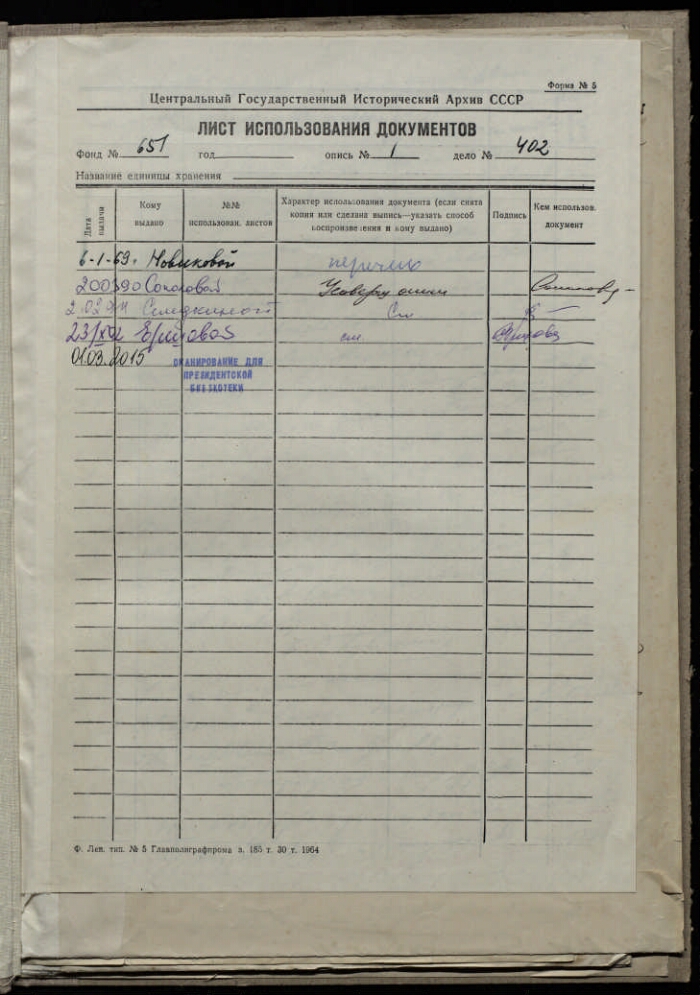 Форма № 5
Центральный Государственный Исторический Архив СССР
ЛИСТ ИСПОЛЬЗОВАНИЯ ДОКУМЕНТОВ
Фонд № 651 год опись № 1 дело № 402
Название единицы хранения
Дата выдачи
Кому выдано
№№ использован. листов
Характер использования документа (если снята копия или сделана выпись—указать способ воспроизведения и кому выдано)
Подпись
Кем использов. документ
6-1-69г. Новиковой
200390 Соколовой
См
см
01.03.2015 СКАНИРОВАНИЕ ДЛЯ
ПРЕЗИДЕНТСКОЙ
БИБЛИОТЕКИ
Ф. Лен. тип. № 5 Главполиграфпрома з. 185 т. 30 т. 1964